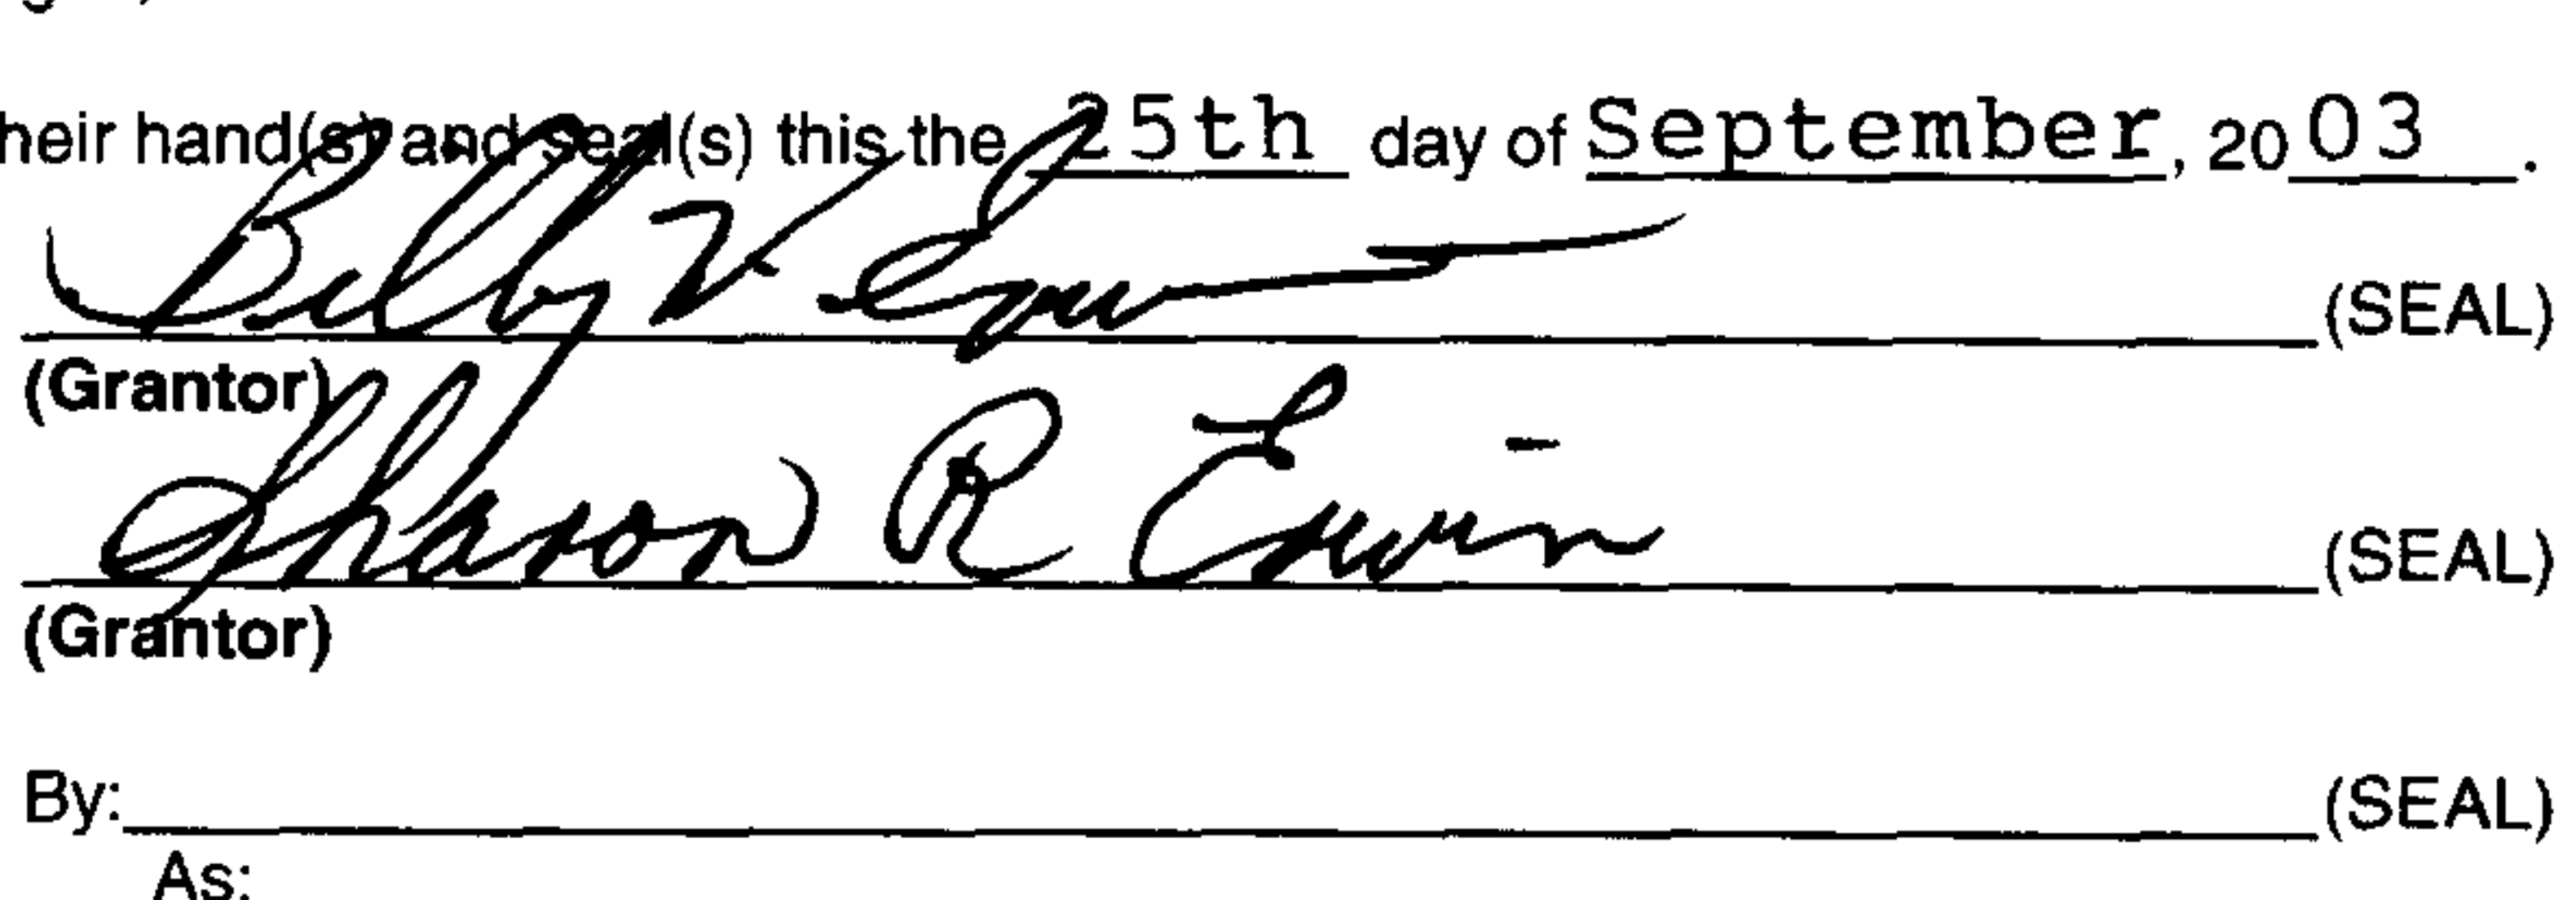 heir hand(s) and seal(s) this the 25th day of September, 2003.
Billy V Erwin (SEAL)
(Grantor)
Sharon R Erwin (SEAL)
(Grantor)
By: (SEAL)
As: